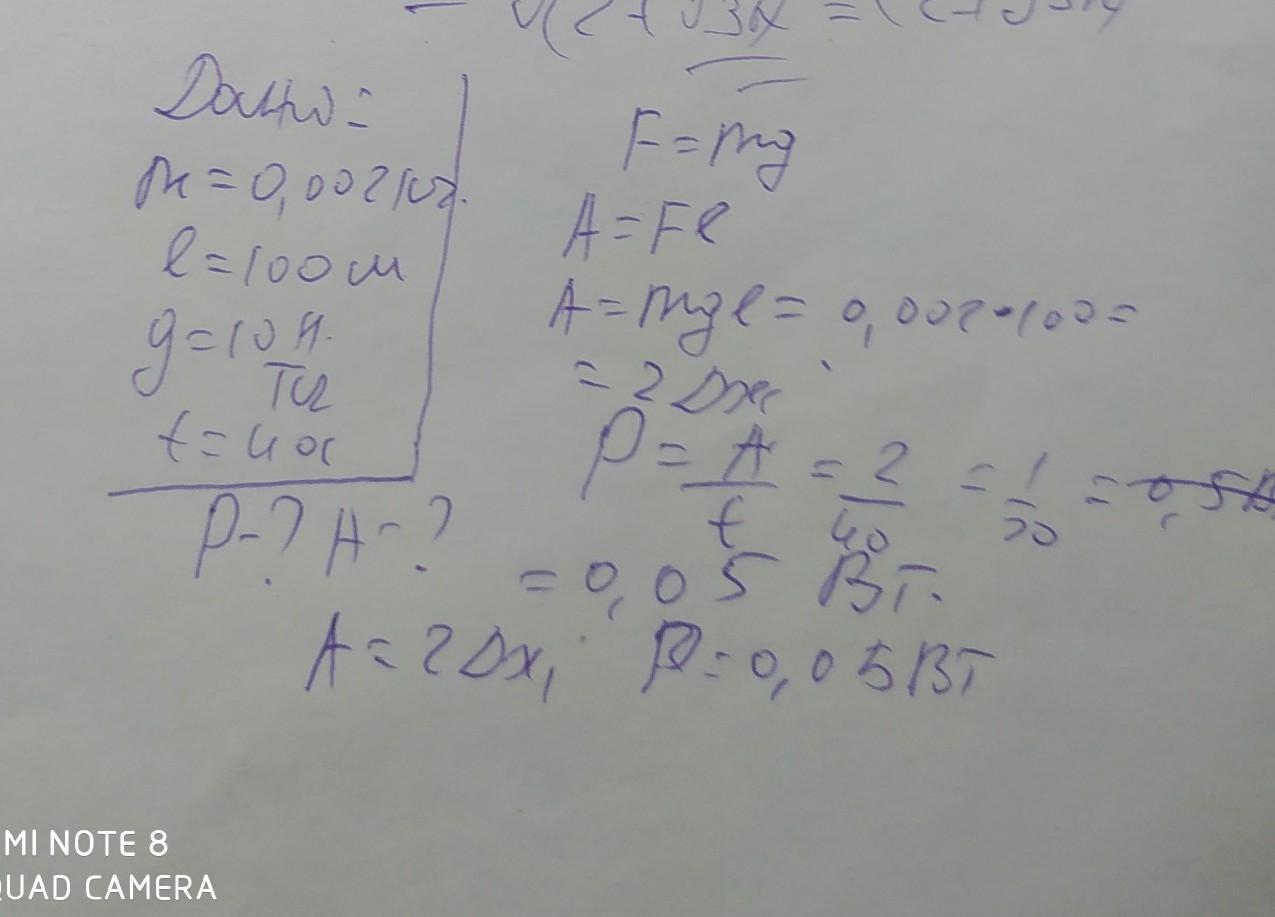 Дано:
m = 0,002 кг.
l = 100 м
g = 10 Н.
кг
t = 40с
P-? A-?
F = mg
A = Fl
A = mgl = 0,002·100=
= 2 Дж
P = A/t = 2/40 = 1/20 = 0,5
= 0,05 Вт.
A = 2 Дж, P = 0,05 Вт
MI NOTE 8
QUAD CAMERA